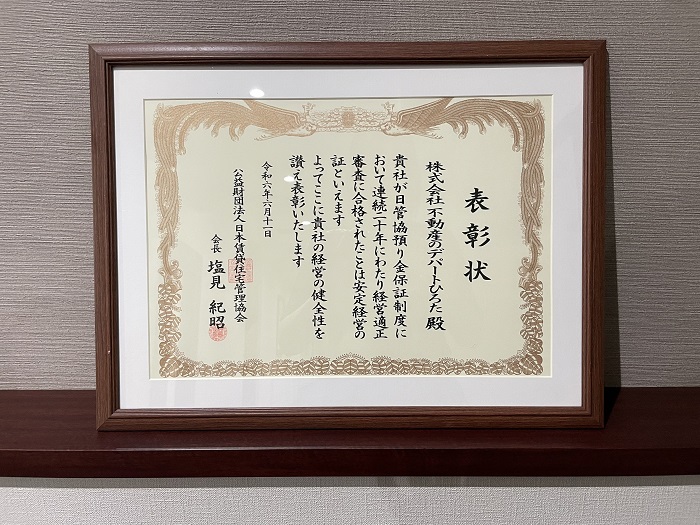 表彰状
株式会社 不動産のデパートひろた 殿
貴社が日管協預り金保証制度に
おいて連続二十年にわたり経営適正
審査に合格されたことは安定経営の
証といえます
よってここに貴社の経営の健全性を
讃え表彰いたします
令和六年六月十一日
公益財団法人日本賃貸住宅管理協会
会長 塩見 紀昭